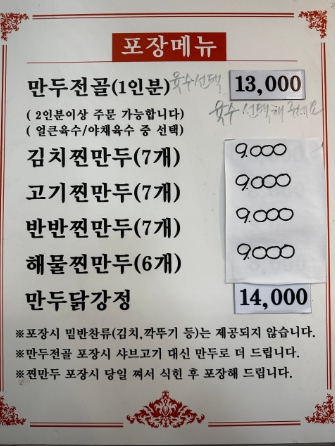 포장메뉴
만두전골(1인분) 육수선택 13,000
육수 선택해 주세요
( 2인분이상 주문 가능합니다 )
( 얼큰육수/야채육수 중 선택)
김치찐만두(7개) 9.000
고기찐만두(7개) 9.000
반반찐만두(7개) 9.000
해물찐만두(6개) 9.000
만두닭강정 14,000
※포장시 밑반찬류(김치,깍뚜기 등)는 제공되지 않습니다.
※만두전골 포장시 샤브고기 대신 만두로 더 드립니다.
※찐만두 포장시 당일 쪄서 식힌 후 포장해 드립니다.